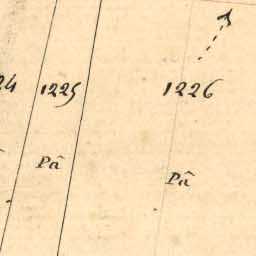 24
1225
1226
Pâ
Pâ